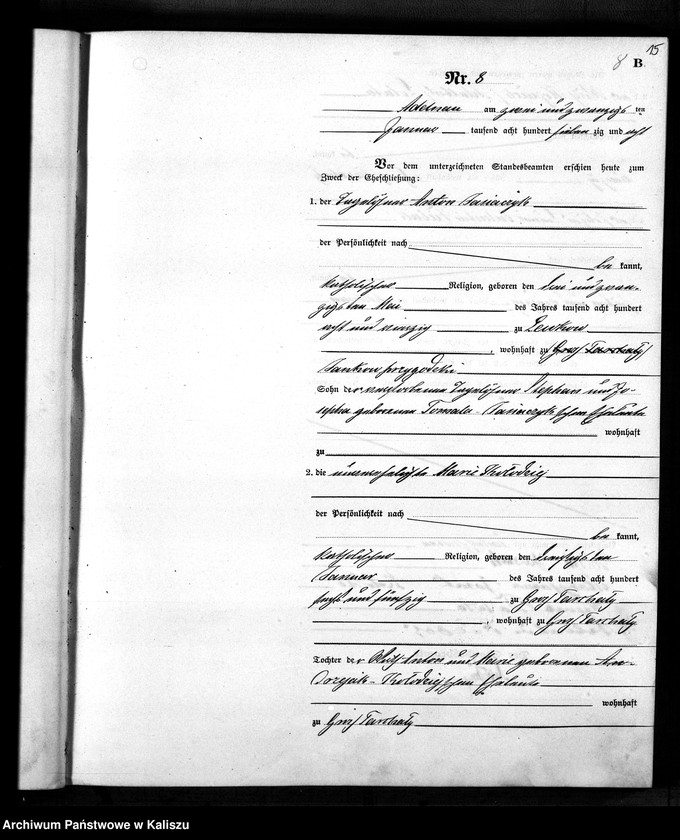 15
8 B.
Nr. 8
Adelnau am zwei und zwanzigsten
Januar tausend acht hundert sieben zig und acht
Vor dem unterzeichneten Standesbeamten erschien heute zum
Zweck der Eheschließung:
1. der Tagelöhner Anton Tasiaczyk
der Persönlichkeit nach
be kannt,
katholischer Religion, geboren den drei und zwan-
zigsten Mai des Jahres tausend acht hundert
acht und vierzig zu Lewkow
, wohnhaft zu (Groß Tarchaly)
przygodzki
Sohn der verstorbenen Tagelöhner Stephan und Jo-
sepha geborenen Tomala - Tasiaczykschen Eheleute
wohnhaft
zu
2. die unverehelichte Marie Kolodziej
der Persönlichkeit nach
be kannt,
katholischer Religion, geboren den dreißigsten
Januar des Jahres tausend acht hundert
sechs und fünfzig zu Groß Tarchaly
, wohnhaft zu Groß Tarchaly
Tochter der Anton und Marie geborenen An-
drzejak - Kolodziejschen Eheleute
wohnhaft
zu Groß Tarchaly
Archiwum Państwowe w Kaliszu